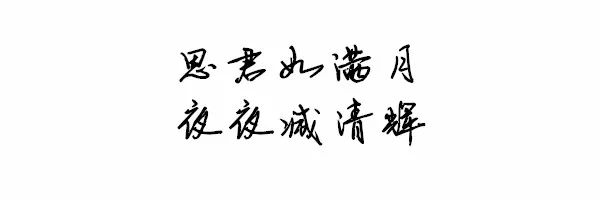 思君如满月
夜夜减清辉